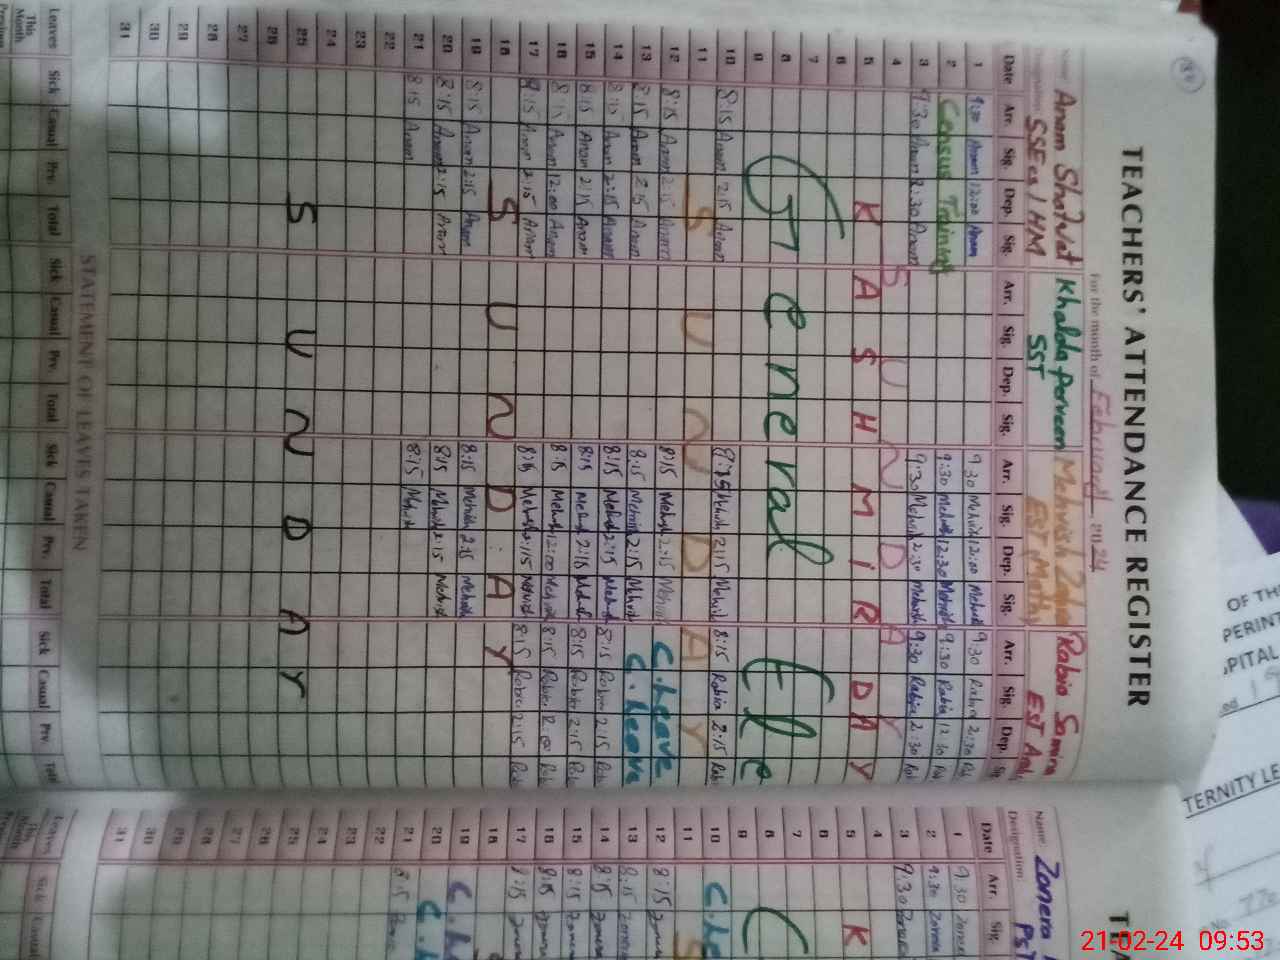 TEACHERS' ATTENDANCE REGISTER
For the month of February 2024
Name: Anam Shafqat Khalda Parveen Mehvish Zahra Rabia Samina
SSE cs / HM SST EST Math EST Arabic
Date Arr. Sig. Dep. Sig. Arr. Sig. Dep. Sig. Arr. Sig. Dep. Sig. Arr. Sig. Dep. Sig
1 9:30 Anam 12:00 Anam 9 30 Mehvish 12:00 Mehvish 9:30 Rabia 2:30
2 Census Training 9:30 Mehvish 12:30 Mehvish 9:30 Rabia 12:30
3 9:30 Anam 2:30 Anam 9:30 Mehvish 2:30 Mehvish 9:30 Rabia 2:30
4 SUNDAY
5 KASHMIR DAY
6
7
8 General Ele
9
10 8:15 Anam 2:15 Anam 8:15 Mehvish 2:15 Mehvish 8:15 Rabia 2:15
11 SUNDAY
12 8:15 Anam 2:15 Anam 8:15 Mehvish 2:15 Mehvish C.leave
13 8:15 Anam 2:15 Anam 8:15 Mehvish 2:15 Mehvish C.leave
14 8:15 Anam 2:15 Anam 8:15 Mehvish 2:15 Mehvish 8:15 Rabia 2:15
15 8:15 Anam 2:15 Anam 8:15 Mehvish 2:15 Mehvish 8:15 Rabia 2:15
16 8:15 Anam 12:00 Anam 8:15 Mehvish 12:00 Mehvish 8:15 Rabia 12:00
17 8:15 Anam 2:15 Anam 8:15 Mehvish 2:15 Mehvish 8:15 Rabia 2:15
18 SUNDAY
19 8:15 Anam 2:15 Anam 8:15 Mehvish 2:15 Mehvish
20 8:15 Anam 2:15 Anam 8:15 Mehvish 2:15 Mehvish
21 8:15 Anam 8:15 Mehvish
22
23
24
25 SUNDAY
26
27
28
29
30
31
STATEMENT OF LEAVES TAKEN
Leaves Sick Casual Prv. Total Sick Casual Prv. Total Sick Casual Prv. Total Sick Casual Prv. Total
This Month
Name: Zonera
Designation: PST
Date Arr. Sig
1 9:30
2 9:30
3 9:30
4
5 K
6
7
8
9
10 C.le
11 S
12 8:15
13 8:15
14 8:15
15 8:15
16 8:15
17 8:15
18
19 C.le
20 C.l
21 8:15
22
23
24
25
26
27
28
29
30
31
Leaves Sick Casual
This Month
OF TH
PERINT
TERNITY LE
21-02-24 09:53